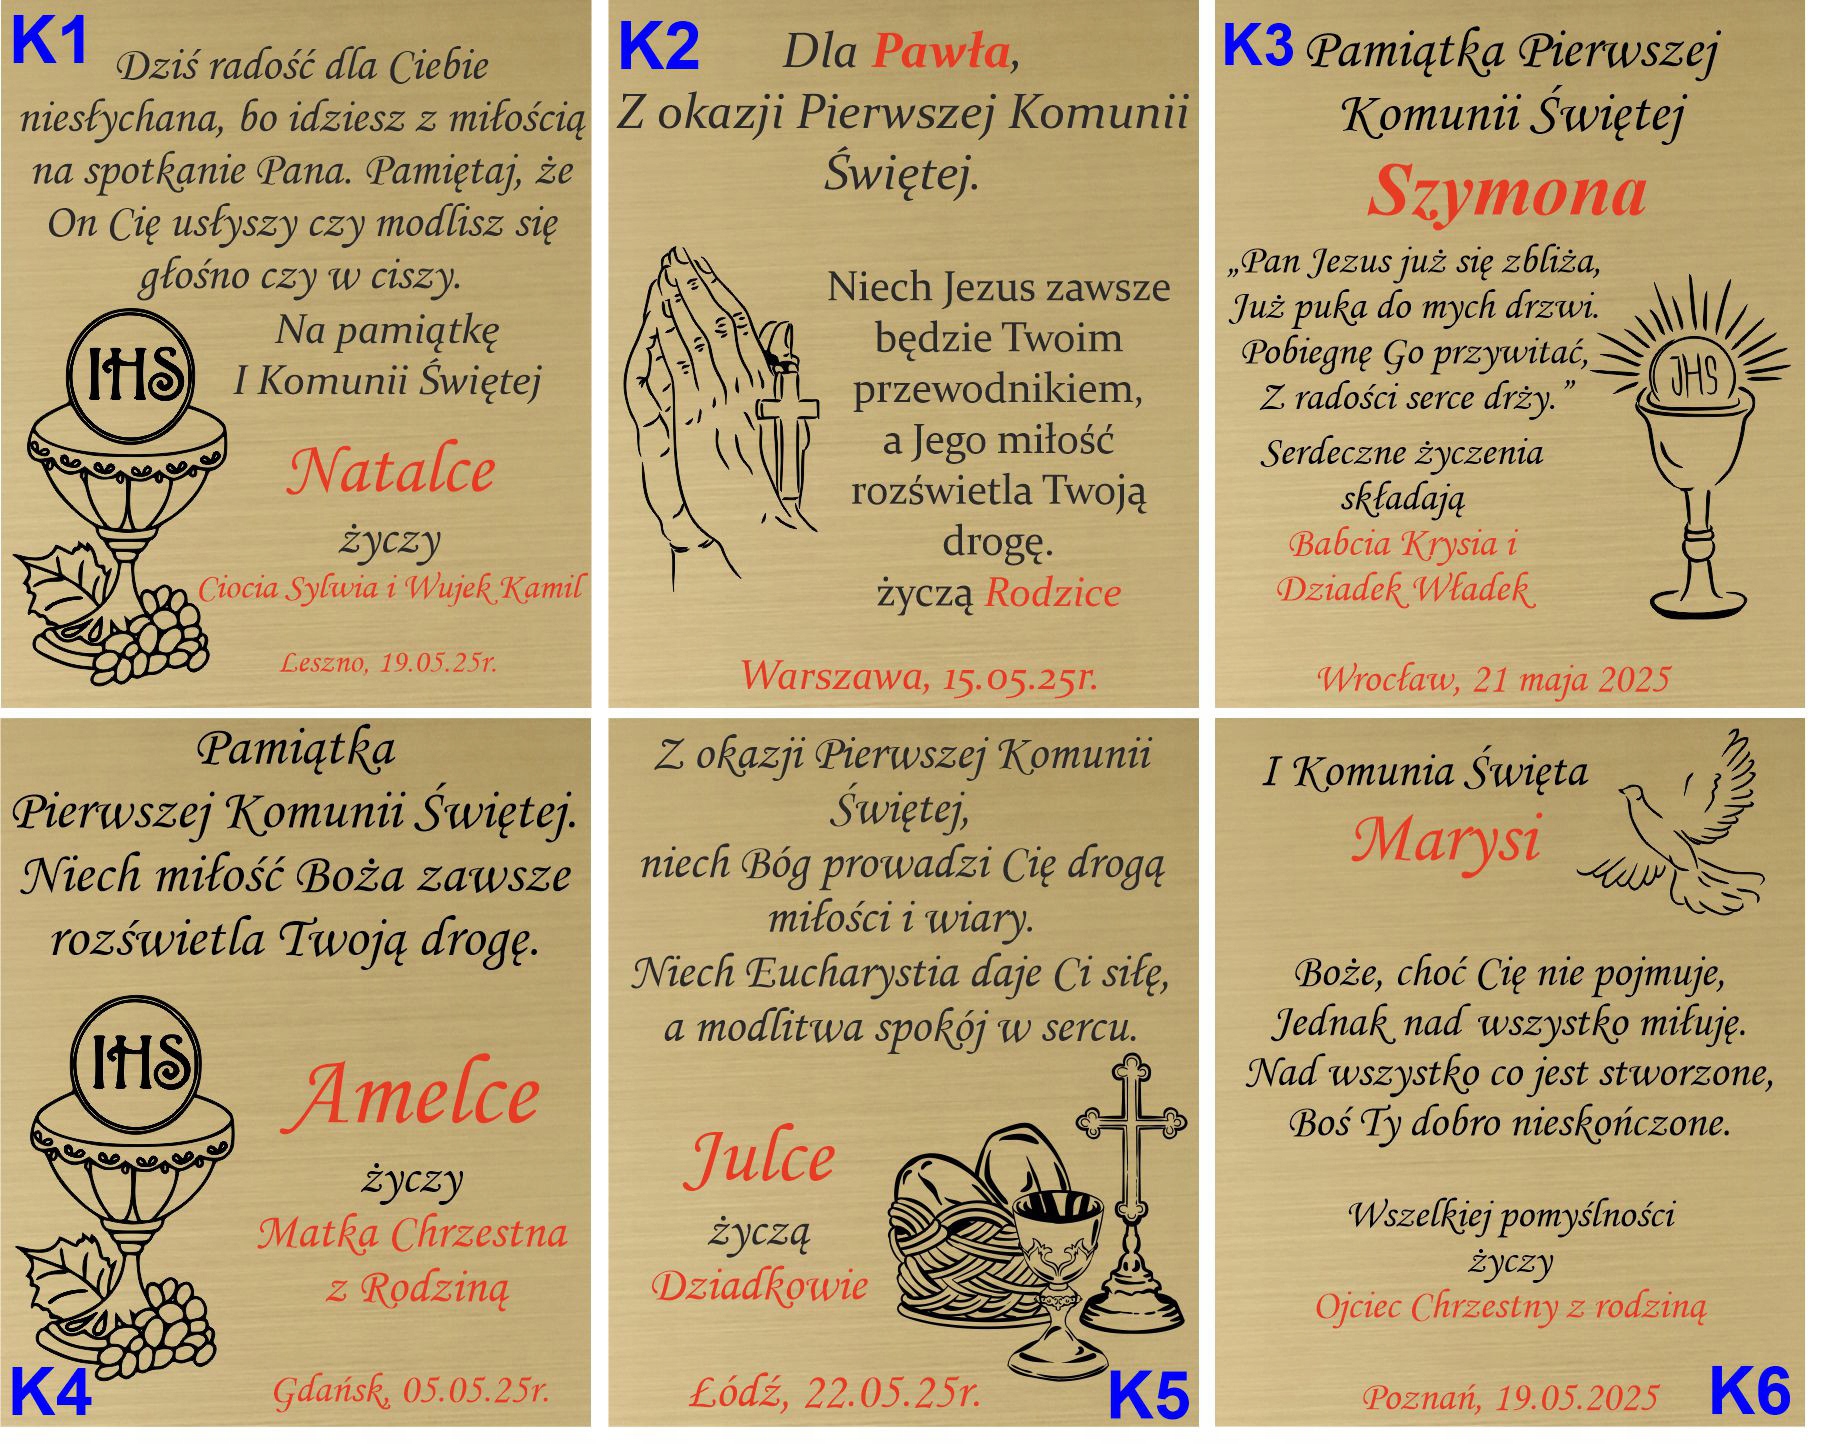 K1
Dziś radość dla Ciebie
niesłychana, bo idziesz z miłością
na spotkanie Pana. Pamiętaj, że
On Cię usłyszy czy modlisz się
głośno czy w ciszy.
IHS
Na pamiątkę
I Komunii Świętej
Natalce
życzy
Ciocia Sylwia i Wujek Kamil
Leszno, 19.05.25r.
K2
Dla Pawła,
Z okazji Pierwszej Komunii
Świętej.
Niech Jezus zawsze
będzie Twoim
przewodnikiem,
a Jego miłość
rozświetla Twoją
drogę.
życzą Rodzice
Warszawa, 15.05.25r.
K3
Pamiątka Pierwszej
Komunii Świętej
Szymona
„Pan Jezus już się zbliża,
Już puka do mych drzwi.
Pobiegnę Go przywitać,
Z radości serce drży.”
JHS
Serdeczne życzenia
składają
Babcia Krysia i
Dziadek Władek
Wrocław, 21 maja 2025
Pamiątka
Pierwszej Komunii Świętej.
Niech miłość Boża zawsze
rozświetla Twoją drogę.
IHS
Amelce
życzy
Matka Chrzestna
z Rodziną
K4
Gdańsk, 05.05.25r.
Z okazji Pierwszej Komunii
Świętej,
niech Bóg prowadzi Cię drogą
miłości i wiary.
Niech Eucharystia daje Ci siłę,
a modlitwa spokój w sercu.
Julce
życzą
Dziadkowie
Łódź, 22.05.25r.
K5
I Komunia Święta
Marysi
Boże, choć Cię nie pojmuje,
Jednak nad wszystko miłuję.
Nad wszystko co jest stworzone,
Boś Ty dobro nieskończone.
Wszelkiej pomyślności
życzy
Ojciec Chrzestny z rodziną
Poznań, 19.05.2025
K6